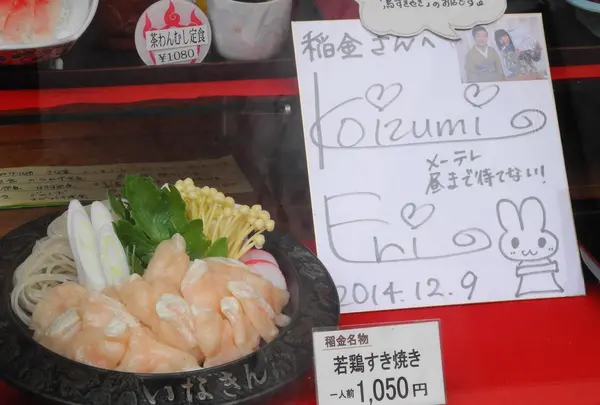 「鳥すきやき」のお店です
茶わんむし定食
¥1080
稲金さんへ
Koizumi
メ〜テレ
昼まで待てない!
Eri
2014.12.9
稲金名物
若鶏すき焼き
一人前1,050円
いなきん